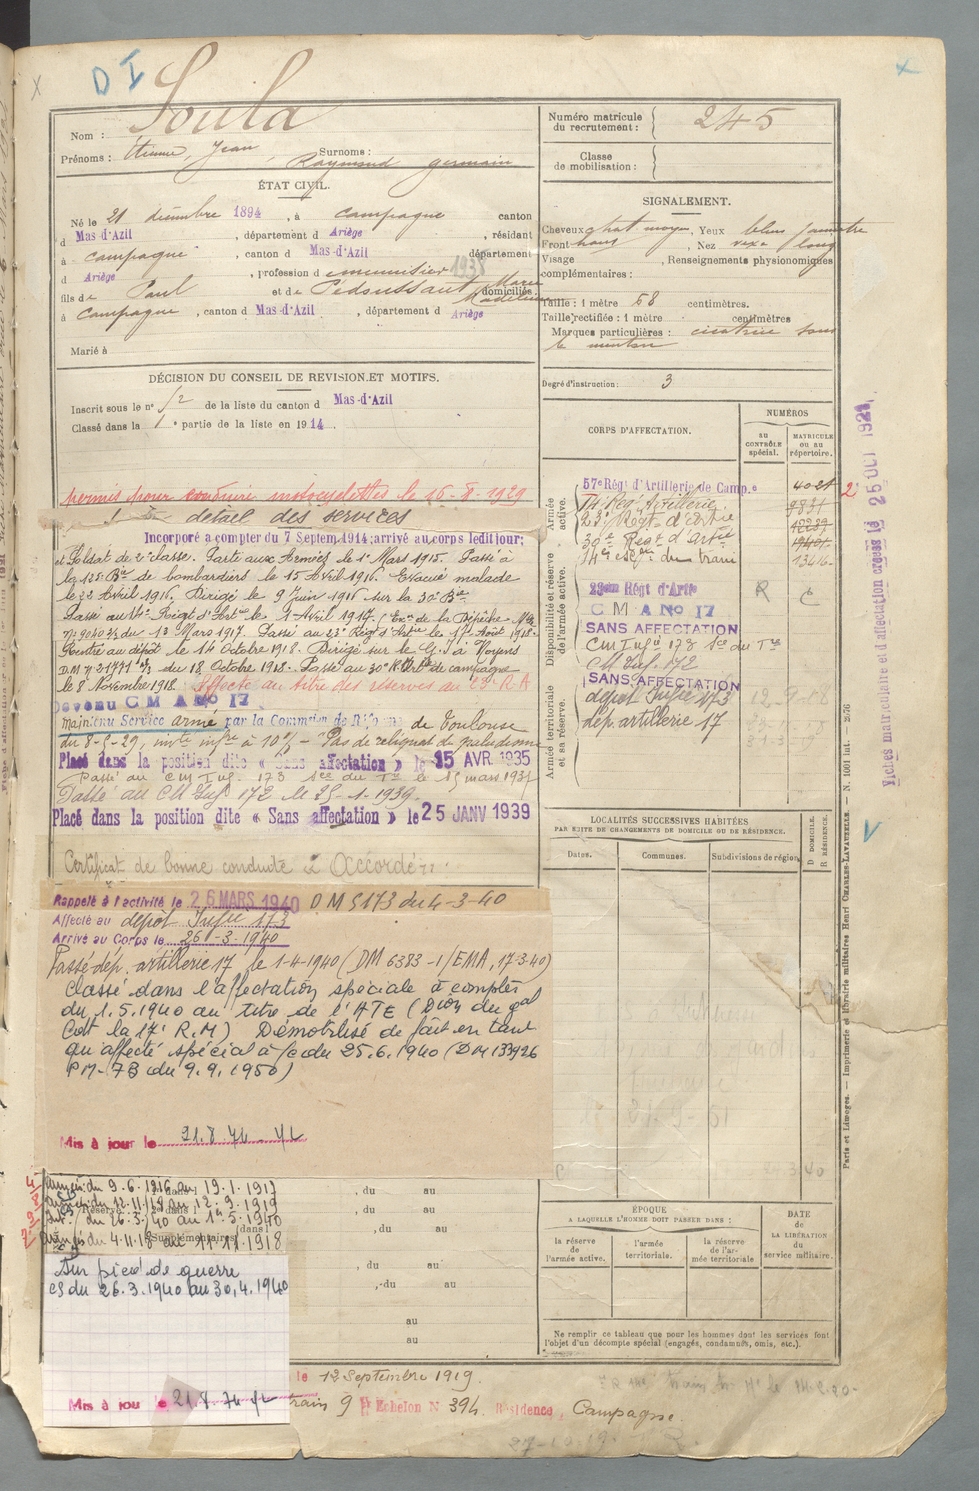 D I
Nom : Soula
Prénoms : Etienne, Jean, Surnoms :
Raymond germain
ÉTAT CIVIL.
Né le 21 décembre 1894, à Campagne canton
d Mas-d'Azil, département d Ariège, résidant
à Campagne, canton d Mas-d'Azil département
d Ariège, profession d menuisier 1938
fils de Paul et de Pédoussaut Marie Madeleine domiciliés
à Campagne, canton d Mas-d'Azil, département d Ariège
Marié à
DÉCISION DU CONSEIL DE REVISION ET MOTIFS.
Inscrit sous le n° 12 de la liste du canton d Mas-d'Azil
Classé dans la 1e partie de la liste en 1914.
permis pour conduire motocyclettes le 16-X-1929
détail des services
Incorporé à compter du 7 Septem. 1914; arrivé au corps ledit jour;
et Soldat de 2e classe. Parti aux Armées le 1er Mars 1915. Passé à
la 125e Bie de bombardiers le 15 Avril 1916. Evacué malade
le 22 Avril 1916. Dirigé le 9 Juin 1916 sur la 30e Bie
Passé au 14e Régt d'Art. le 1 Avril 1917. (Exon de la Dépêche Mlle
du 13 Mars 1917. Passé au 23e Régt d'Artie le 17 Août 1918.
Rentré au dépôt le 14 Octobre 1918. Dirigé sur le à Noyens
D.M. n° 21771 3/3 du 18 Octobre 1918. Passé au 30e R. d'Art. de campagne
le 8 Novembre 1918. Affecté au titre des réserves au 23e R.A
Devenu C M A No 17
Maintenu Service armé par la Commion de Réforme de Toulouse
du 8-5-29, invté infre à 10% - Pas de reliquat de paludisme
Placé dans la position dite « Sans affectation » le 15 AVR. 1935
Passé au CM Inf. 173 Sce du Tn le 15 mars 193
Passé au CM Inf. 172 le 25-1-1939.
Placé dans la position dite « Sans affectation » le 25 JANV 1939
Certificat de bonne conduite "Accordé".
Rappelé à l'activité le 26 MARS 1940 DM 5173 du 4-3-40
Affecté au dépôt Infie 173
Arrivé au Corps le 26-3-1940
Passé dép. artillerie 17 le 1-4-1940 (DM 6383-1/EMA, 17-3-40)
Classé dans l'affectation spéciale à compter
du 1.5.1940 au titre de l'ATE (Dion du gal
Cdt la 17e R.M) Démobilisé de fait en tant
qu'affecté spécial à/c du 25.6.1940 (DM 133926
PM-7B du 9.9.1950)
Mis à jour le 21.8.74
du 9.6.1916 au 19.1.1917
du 12.11.18 au 12.9.1919
Int. (du 26.3.40 au 1er 5.1940
du 4.11.18 au 11.11.1918
, du au
, du au
, du au
, du au
, du au
au
au
Sur pied de guerre
CS du 26.3.1940 au 30.4.1940
Mis à jou le 21.8.74
le 12 Septembre 1919.
train 9 Echelon N° 394. Résidence, Campagne.
Numéro matricule du recrutement : 245
Classe de mobilisation :
SIGNALEMENT.
Cheveux chat moyen, Yeux bleu
Front haut, Nez vexe long
Visage, Renseignements physionomiques
complémentaires :
Taille : 1 mètre 68 centimètres.
Taille rectifiée : 1 mètre centimètres
Marques particulières : cicatrice sous
le menton
Degré d'instruction : 3
CORPS D'AFFECTATION.
NUMÉROS
au CONTRÔLE spécial.
MATRICULE ou au répertoire.
Armée active.
57e Régt d'Artillerie de Camp.e 4021 2
14 Reg. Artillerie 9831
23e Régt d'Artie
30e Régt d'Artie
14e escon du train 13416
Disponibilité et réserve de l'armée active.
23ème Régt d'Artie R
C M A No 17
SANS AFFECTATION
CM Infie 173 Sce du Tn
CM Inf. 172
SANS AFFECTATION
Armée territoriale et sa réserve.
dépôt Infie 173
dép. artillerie 17
LOCALITÉS SUCCESSIVES HABITÉES
PAR SUITE DE CHANGEMENTS DE DOMICILE OU DE RÉSIDENCE.
Dates.
Communes.
Subdivisions de région
D DOMICILE.
R RÉSIDENCE.
ÉPOQUE
A LAQUELLE L'HOMME DOIT PASSER DANS :
la réserve de l'armée active.
l'armée territoriale.
la réserve de l'armée territoriale
DATE de LA LIBÉRATION du service militaire.
Ne remplir ce tableau que pour les hommes dont les services font
l'objet d'un décompte spécial (engagés, condamnés, omis, etc.).
Fiches matriculaire et d'affectation créées le 26 OCT 1921.
Paris et Limoges. — Imprimerie et librairie militaires Henri CHARLES-LAVAUZELLE. — N. 1001 int. — 2/76